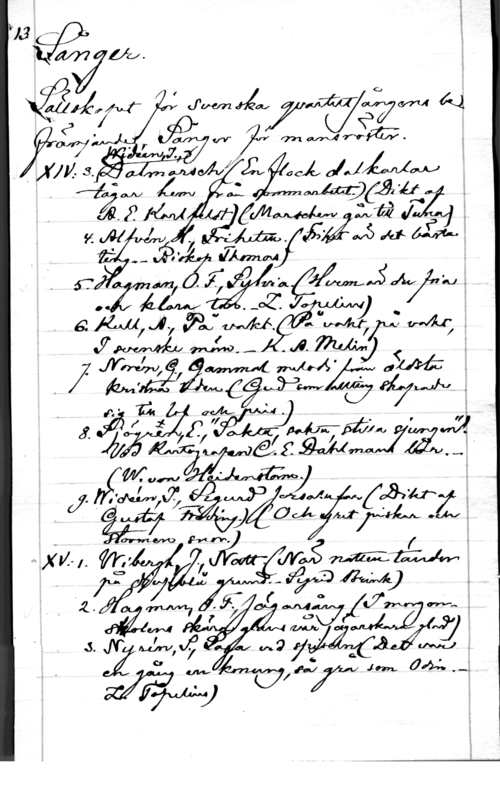 13
Sånger.
Sällskapet för svenska quartettsångens be-
främjande, Sånger för mansröster.
Widéen, I.,
XIV: 3. Dalmarsch (En flock dalkarlar
tågar hem från sommararbetet.) (Dikt af
A. E. Karlfeldt) (Marschen går till Tuna)
4. Alfvén, H., Friheten. (Frihet är det bästa
ting. - Biskop Thomas)
5. Hagman, O. F., Sylvia (Hvem är du fria
och klara tös. - Z. Topelius)
6. Kull, A., På vakt. (På vakt, på vakt,
I svenske män. - K. A. Melin)
7. Norén, G, Gammal melodi från äldsta
kristna tiden (Gud som allting skapade
sig till lof och pris.)
8. Sjögren, E., "Sakta, sakta, stilla sjungen"!
Vid Kantor C. E. Dahlmans bår. -
(W. von Heidenstam.)
9. Widéen, I., Sigurd Jorsalafar (Dikt af
Gustaf Fröding) (Och yret piskar och
stormen snor.)
XV: 1. Wibergh, J., Natt (När natten tänder
på blå grund. - Sigrid Brink)
2. Hagman, O. F., Jägarsång (I morgon-
solens skära glans vår jägarskara glad)
3. Nyrén, S., Saga vid spiseln (Det var
en gång en konung, så grå som Odin. -
Z. Topelius)